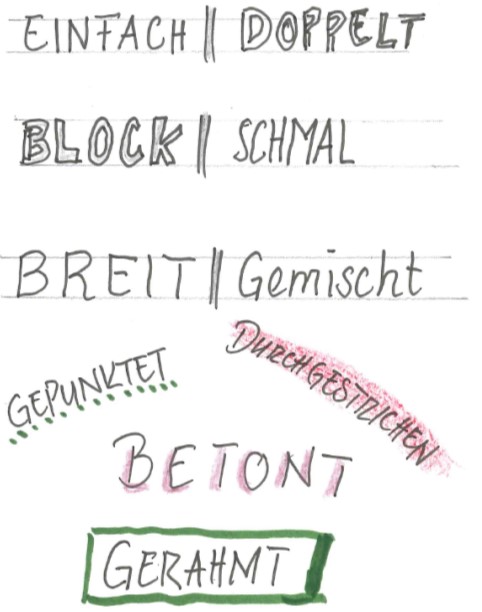 EINFACH || DOPPELT
BLOCK || SCHMAL
BREIT || Gemischt
GEPUNKTET
DURCHGESTRICHEN
BETONT
GERAHMT